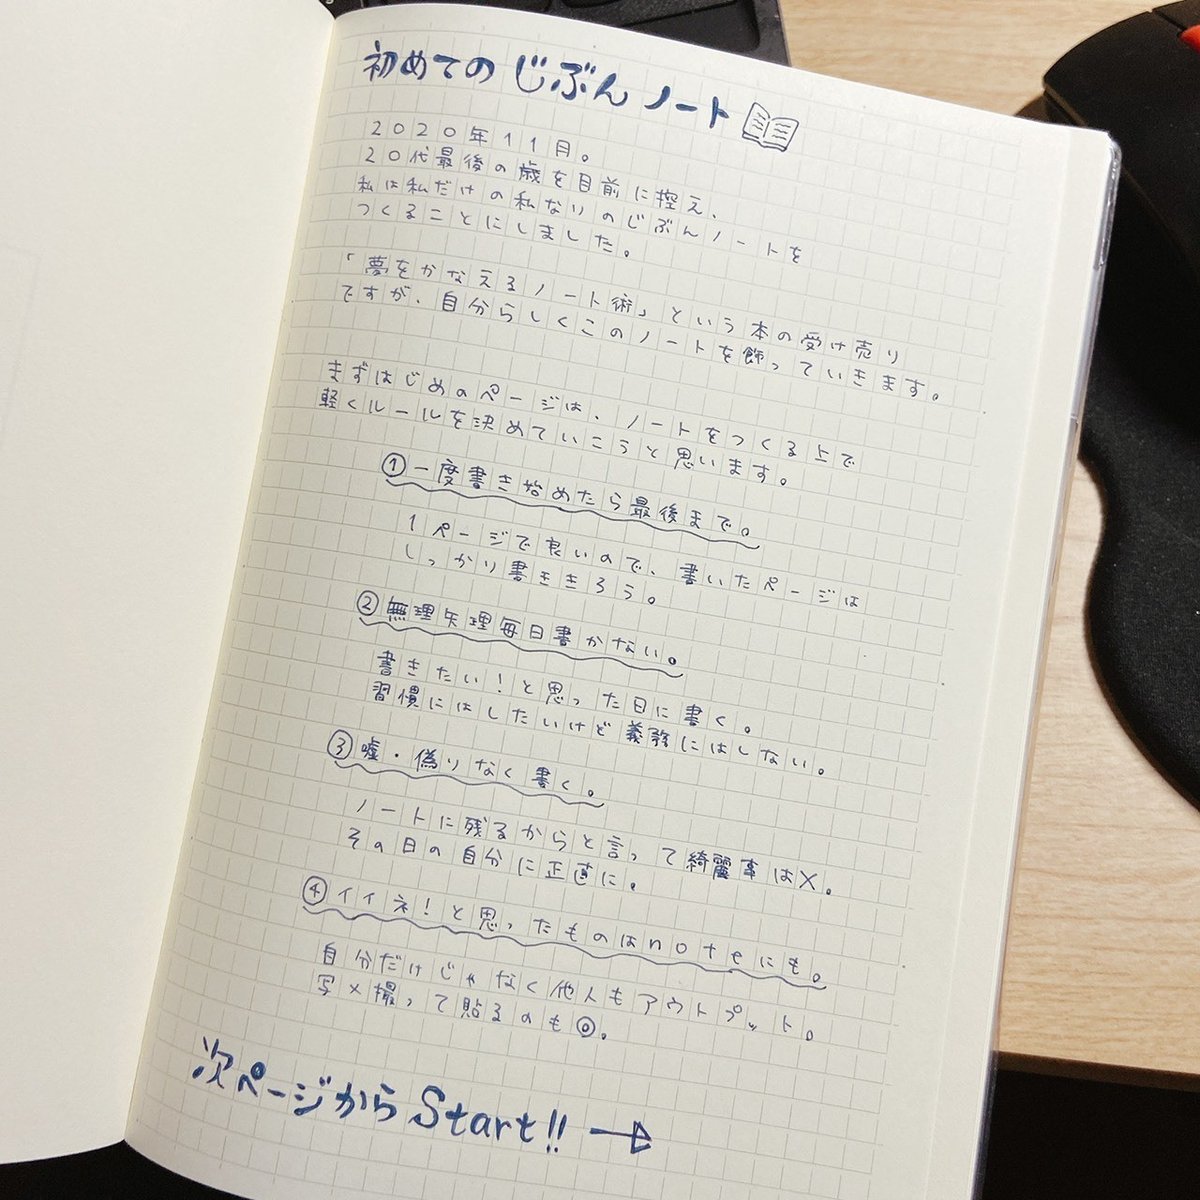 初めての じぶん ノート
2020年11月。
20代最後の歳を目前に控え、
私は私だけの私なりのじぶんノートを
つくることにしました。
「夢をかなえるノート術」という本の受け売り
ですが、自分らしくこのノートを飾っていきます。
まずはじめのページは、ノートをつくる上で
軽くルールを決めていこうと思います。
①一度書き始めたら最後まで。
1ページで良いので、書いたページは
しっかり書ききろう。
②無理矢理毎日書かない。
書きたい!と思った日に書く。
習慣にはしたいけど義務にはしない。
③嘘・偽りなく書く。
ノートに残るからと言って綺麗事は×。
その日の自分に正直に。
④イイネ!と思ったものはnoteにも。
自分だけじゃなく他人もアウトプット。
写メ撮って貼るのも◎。
次ページから Start!! →